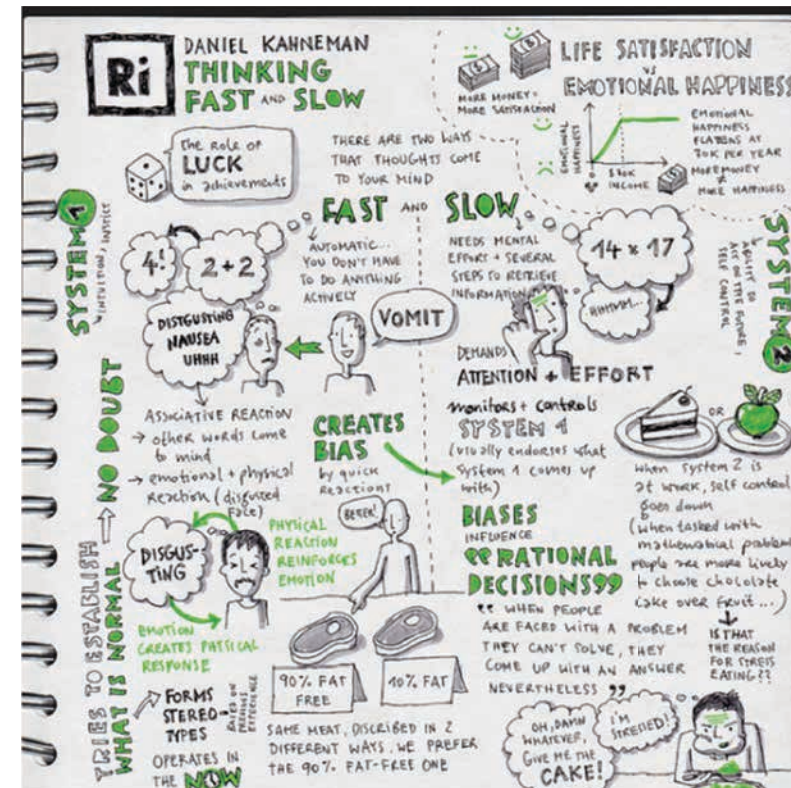 Ri
DANIEL KAHNEMAN
THINKING
FAST AND SLOW
MORE MONEY =
MORE SATISFACTION
LIFE SATISFACTION
vs
EMOTIONAL HAPPINESS
EMOTIONAL
HAPPINESS
$70K
INCOME
EMOTIONAL
HAPPINESS
FLATENS AT
70K PER YEAR
MORE MONEY
≠
MORE HAPPINESS
The role of
LUCK
in achievements
THERE ARE TWO WAYS
THAT THOUGHTS COME
TO YOUR MIND
SYSTEM 1
INTUITION, INSTICT
FAST AND SLOW
4!
2+2
AUTOMATIC...
YOU DON'T HAVE
TO DO ANYTHING
ACTIVELY
DISTGUSTING
NAUSEA
UHHH
VOMIT
ASSOCIATIVE REACTION
→ other words come
to mind
→ emotional + physical
Reaction (disgusted
face)
CREATES
BIAS
by quick
Reactions
DISGUS-
TING
PHYSICAL
REACTION
REINFORCES
EMOTION
EMOTION
CREATES PHYSICAL
RESPONSE
TRIES TO ESTABLISH → NO DOUBT
WHAT IS NORMAL
FORMS
STEREO-
TYPES
BASED ON
PREVIOUS
EXPERIENCE
OPERATES IN
THE NOW
BETTER!
90% FAT
FREE
10% FAT
SAME MEAT, DISCRIBED IN 2
DIFFERENT WAYS. WE PREFER
THE 90% FAT-FREE ONE
NEEDS MENTAL
EFFORT + SEVERAL
STEPS TO RETRIEVE
INFORMATION
14 x 17
HHMMM...
SYSTEM 2
ABILITY TO
ACT ON THE FUTURE,
SELF CONTROL
DEMANDS
ATTENTION + EFFORT
monitors + controls
SYSTEM 1
(usually endorses what
system 1 comes up
with)
BIASES
INFLUENCE
"RATIONAL
DECISIONS"
" WHEN PEOPLE
ARE FACED WITH A PROBLEM
THEY CAN'T SOLVE, THEY
COME UP WITH AN ANSWER
NEVERTHELESS "
OR
when system 2 is
at work, self control
goes down
(when tasked with
mathematical problem
people are more likely
to choose chocolate
cake over fruit...)
IS THAT
THE REASON
FOR STRESS
EATING??
OH, DAMN
WHATEVER,
GIVE ME THE
CAKE!
I'M
STRESSED!